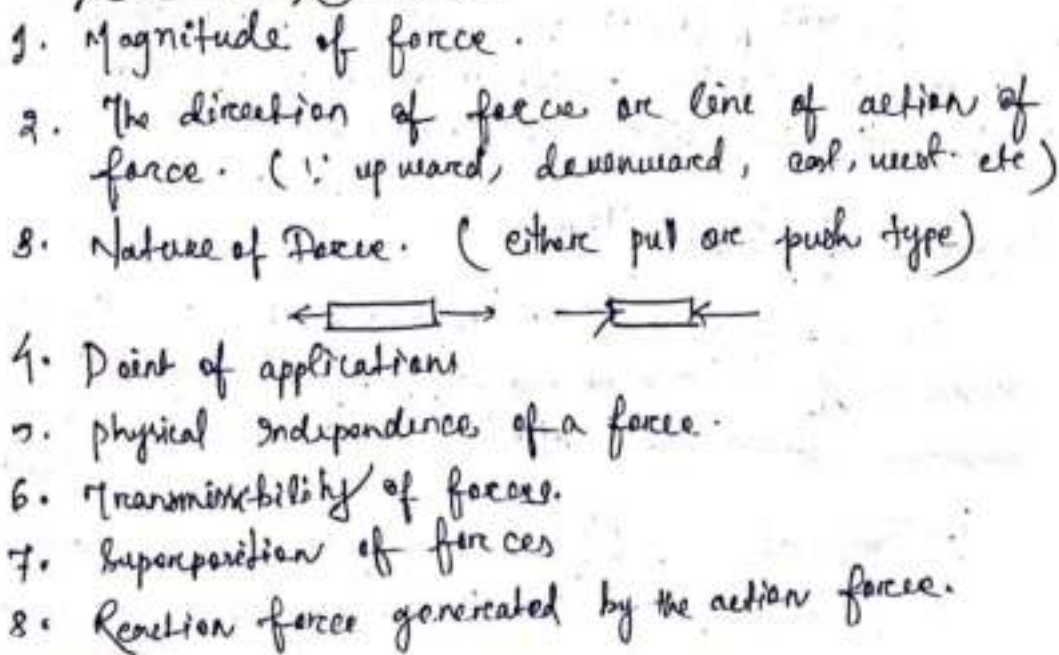 1. Magnitude of force.
2. The direction of force or line of action of
force. (∵ upward, downward, east, west etc)
3. Nature of Force. (either pull or push type)
4. Point of applications
5. physical independence of a force.
6. Transmissibility of forces.
7. Superposition of forces
8. Reaction force generated by the action force.